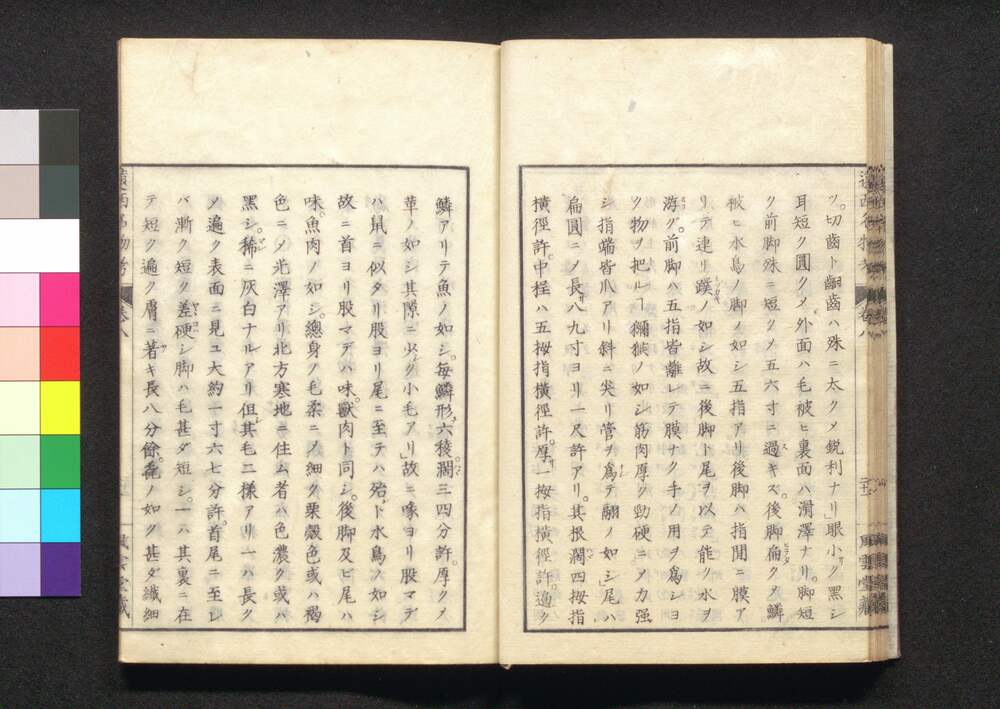 ツ。切齒ト齦齒ハ殊ニ太クメ鋭利ナリ」眼小ク黑シ
耳短ク圓クメ外面ハ毛被ヒ裏面ハ滑澤ナリ。脚短
ク前脚殊ニ短クメ五六寸ニ過キズ。後脚扁クメ鱗
被ヒ水鳥ノ脚ノ如シ五指アリ後脚ハ指間ニ膜ア
リテ連リ蹼ノ如シ故ニ後脚ト尾ヲ以テ能ク水ヲ
游グ。前脚ハ五指皆離レテ膜ナク手ノ用ヲ爲シヨ
ク物ヲ把ルヿ獼猴ノ如シ筋肉厚ク勁硬ニメ力强
シ指端皆爪アリ斜ニ尖リ管ヲ爲テ翮ノ如シ」尾ハ
扁圓ニメ長サ八九寸ヨリ一尺許アリ。其根濶四拇指
橫徑許。中程ハ五拇指橫徑許。厚サ一拇指橫徑許。遍ク
鱗アリテ魚ノ如シ。每鱗形六稜。濶三四分許。厚クメ
革ノ如シ其隙ニ少ク小毛アリ」故ニ喙ヨリ股マデ
ハ鼠ニ似タリ股ヨリ尾ニ至テハ殆ド水鳥ノ如シ
故ニ首ヨリ股マデハ味。獸肉ト同シ。後脚及ビ尾ハ
味。魚肉ノ如シ。總身ノ毛柔ニメ細ク栗殼色或ハ褐
色ニメ光澤アリ北方寒地ニ住ム者ハ色濃ク或ハ
黑シ。稀ニ灰白ナルアリ但其毛二樣アリ一ハ長ク
メ遍ク表面ニ見ユ大約一寸六七分許。首尾ニ至レ
バ漸ク短ク差硬シ脚ハ毛甚ダ短シ。一ハ其裏ニ在
テ短ク遍ク膚ニ著キ長八分餘。毳ノ如ク甚ダ纎細
遠西名物考
卷八
風雲堂藏